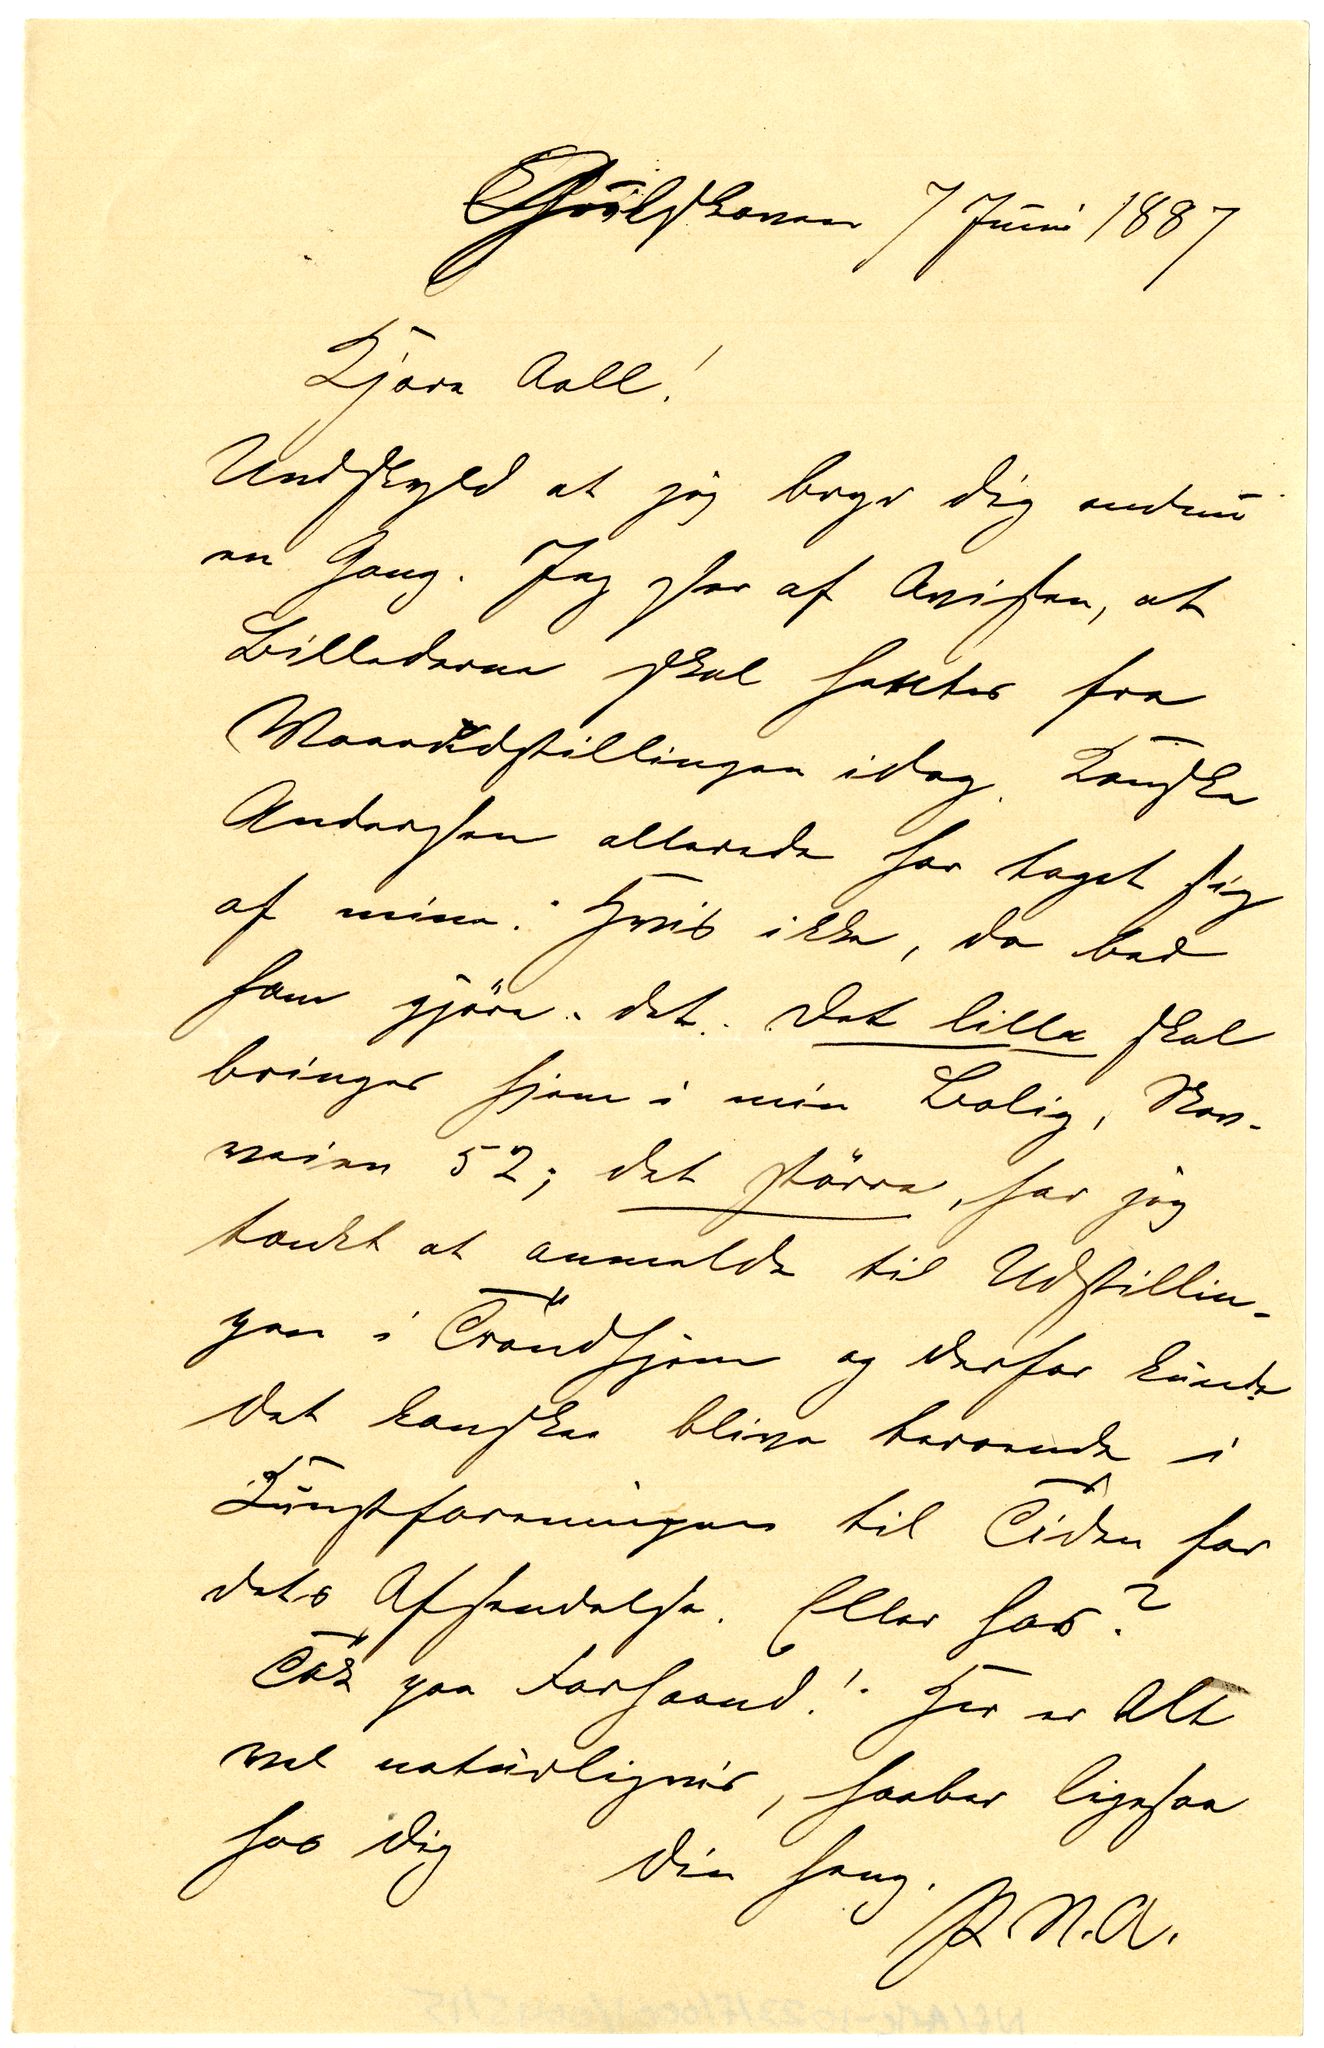 7 Juni 1887
Kjære Aall!
Undskyld at jeg bryr dig endnu
en Gang. Jeg ser af Avisen, at
Billederne skal hentes fra
Vaarudstillingen idag. Kanske
Andersen allerede har taget sig
af mine. Hvis ikke, da bed
ham gjöre det. Det lille skal
bringes hjem i min Bolig, Nor-
veien 52; det större, har jeg
tænkt at anmelde til Udstillin-
gen i Tröndhjem og derfor kunde
det kanske blive beroende i
Kunstforeningen til Tiden for
dets Afsendelse. Eller hos?
Tak paa Forhaand! Her er Alt
vel naturligvis, haaber ligesaa
hos dig Din heng.
N.A.